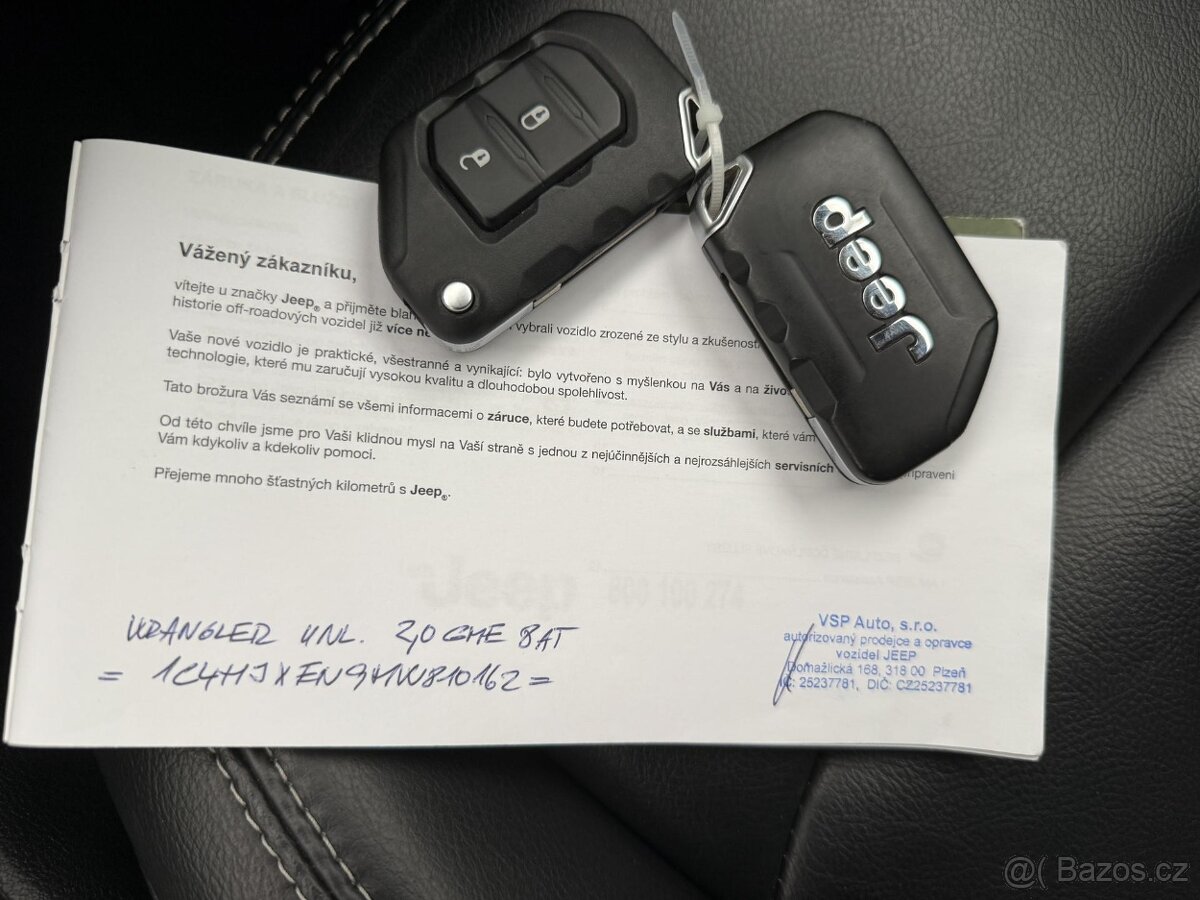 Vážený zákazníku,
vítejte u značky Jeep® a přijměte blah vybrali vozidlo zrozené ze stylu a zkušenost
historie off-roadových vozidel již více ne
Vaše nové vozidlo je praktické, všestranné a vynikající: bylo vytvořeno s myšlenkou na Vás a na živo
technologie, které mu zaručují vysokou kvalitu a dlouhodobou spolehlivost.
Tato brožura Vás seznámí se všemi informacemi o záruce, které budete potřebovat, a se službami, které vám
Od této chvíle jsme pro Vaši klidnou mysl na Vaší straně s jednou z nejúčinnějších a nejrozsáhlejších servisních připraveni
Vám kdykoliv a kdekoliv pomoci.
Přejeme mnoho šťastných kilometrů s Jeep®.
Jeep
WRANGLER UNL. 2,0 GME 8AT
VSP Auto, s.r.o.
autorizovaný prodejce a opravce
vozidel JEEP
Domažlická 168, 318 00 Plzeň
IČ: 25237781, DIČ: CZ25237781
@( Bazos.cz